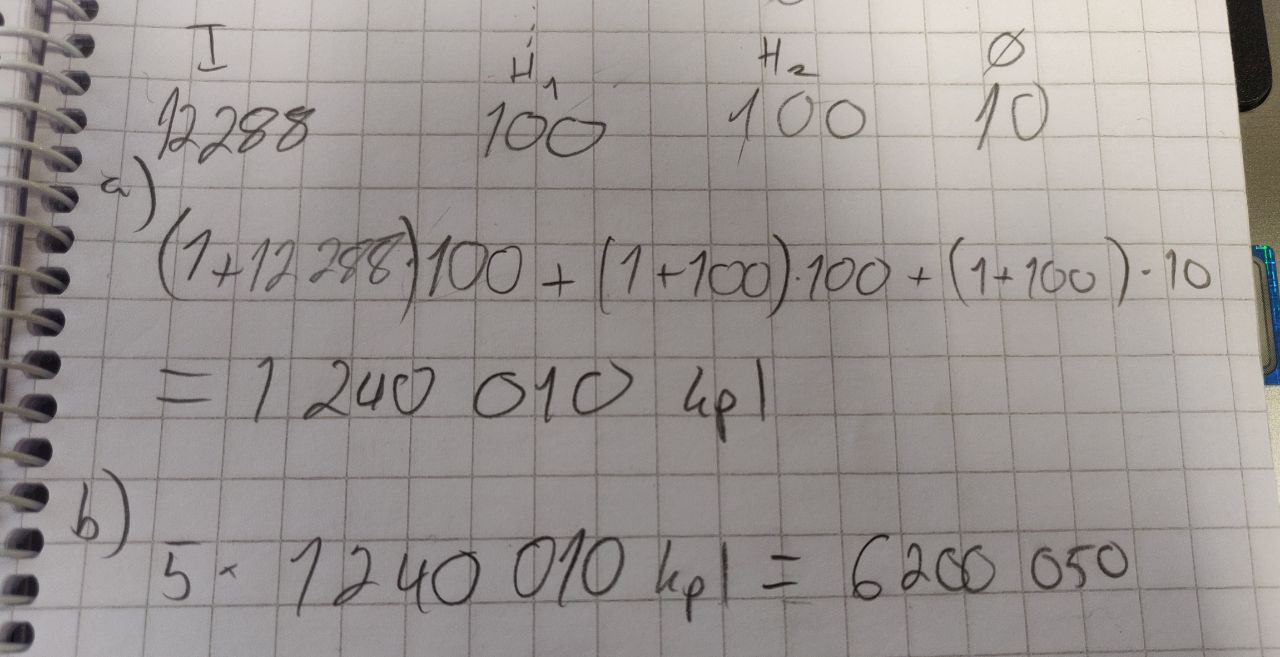 I H₁ H₂ Ø
12288 100 100 10
a)
(1+12288)·100 + (1+100)·100 + (1+100)·10
= 1 240 010 kpl
b)
5 · 1 240 010 kpl = 6 200 050